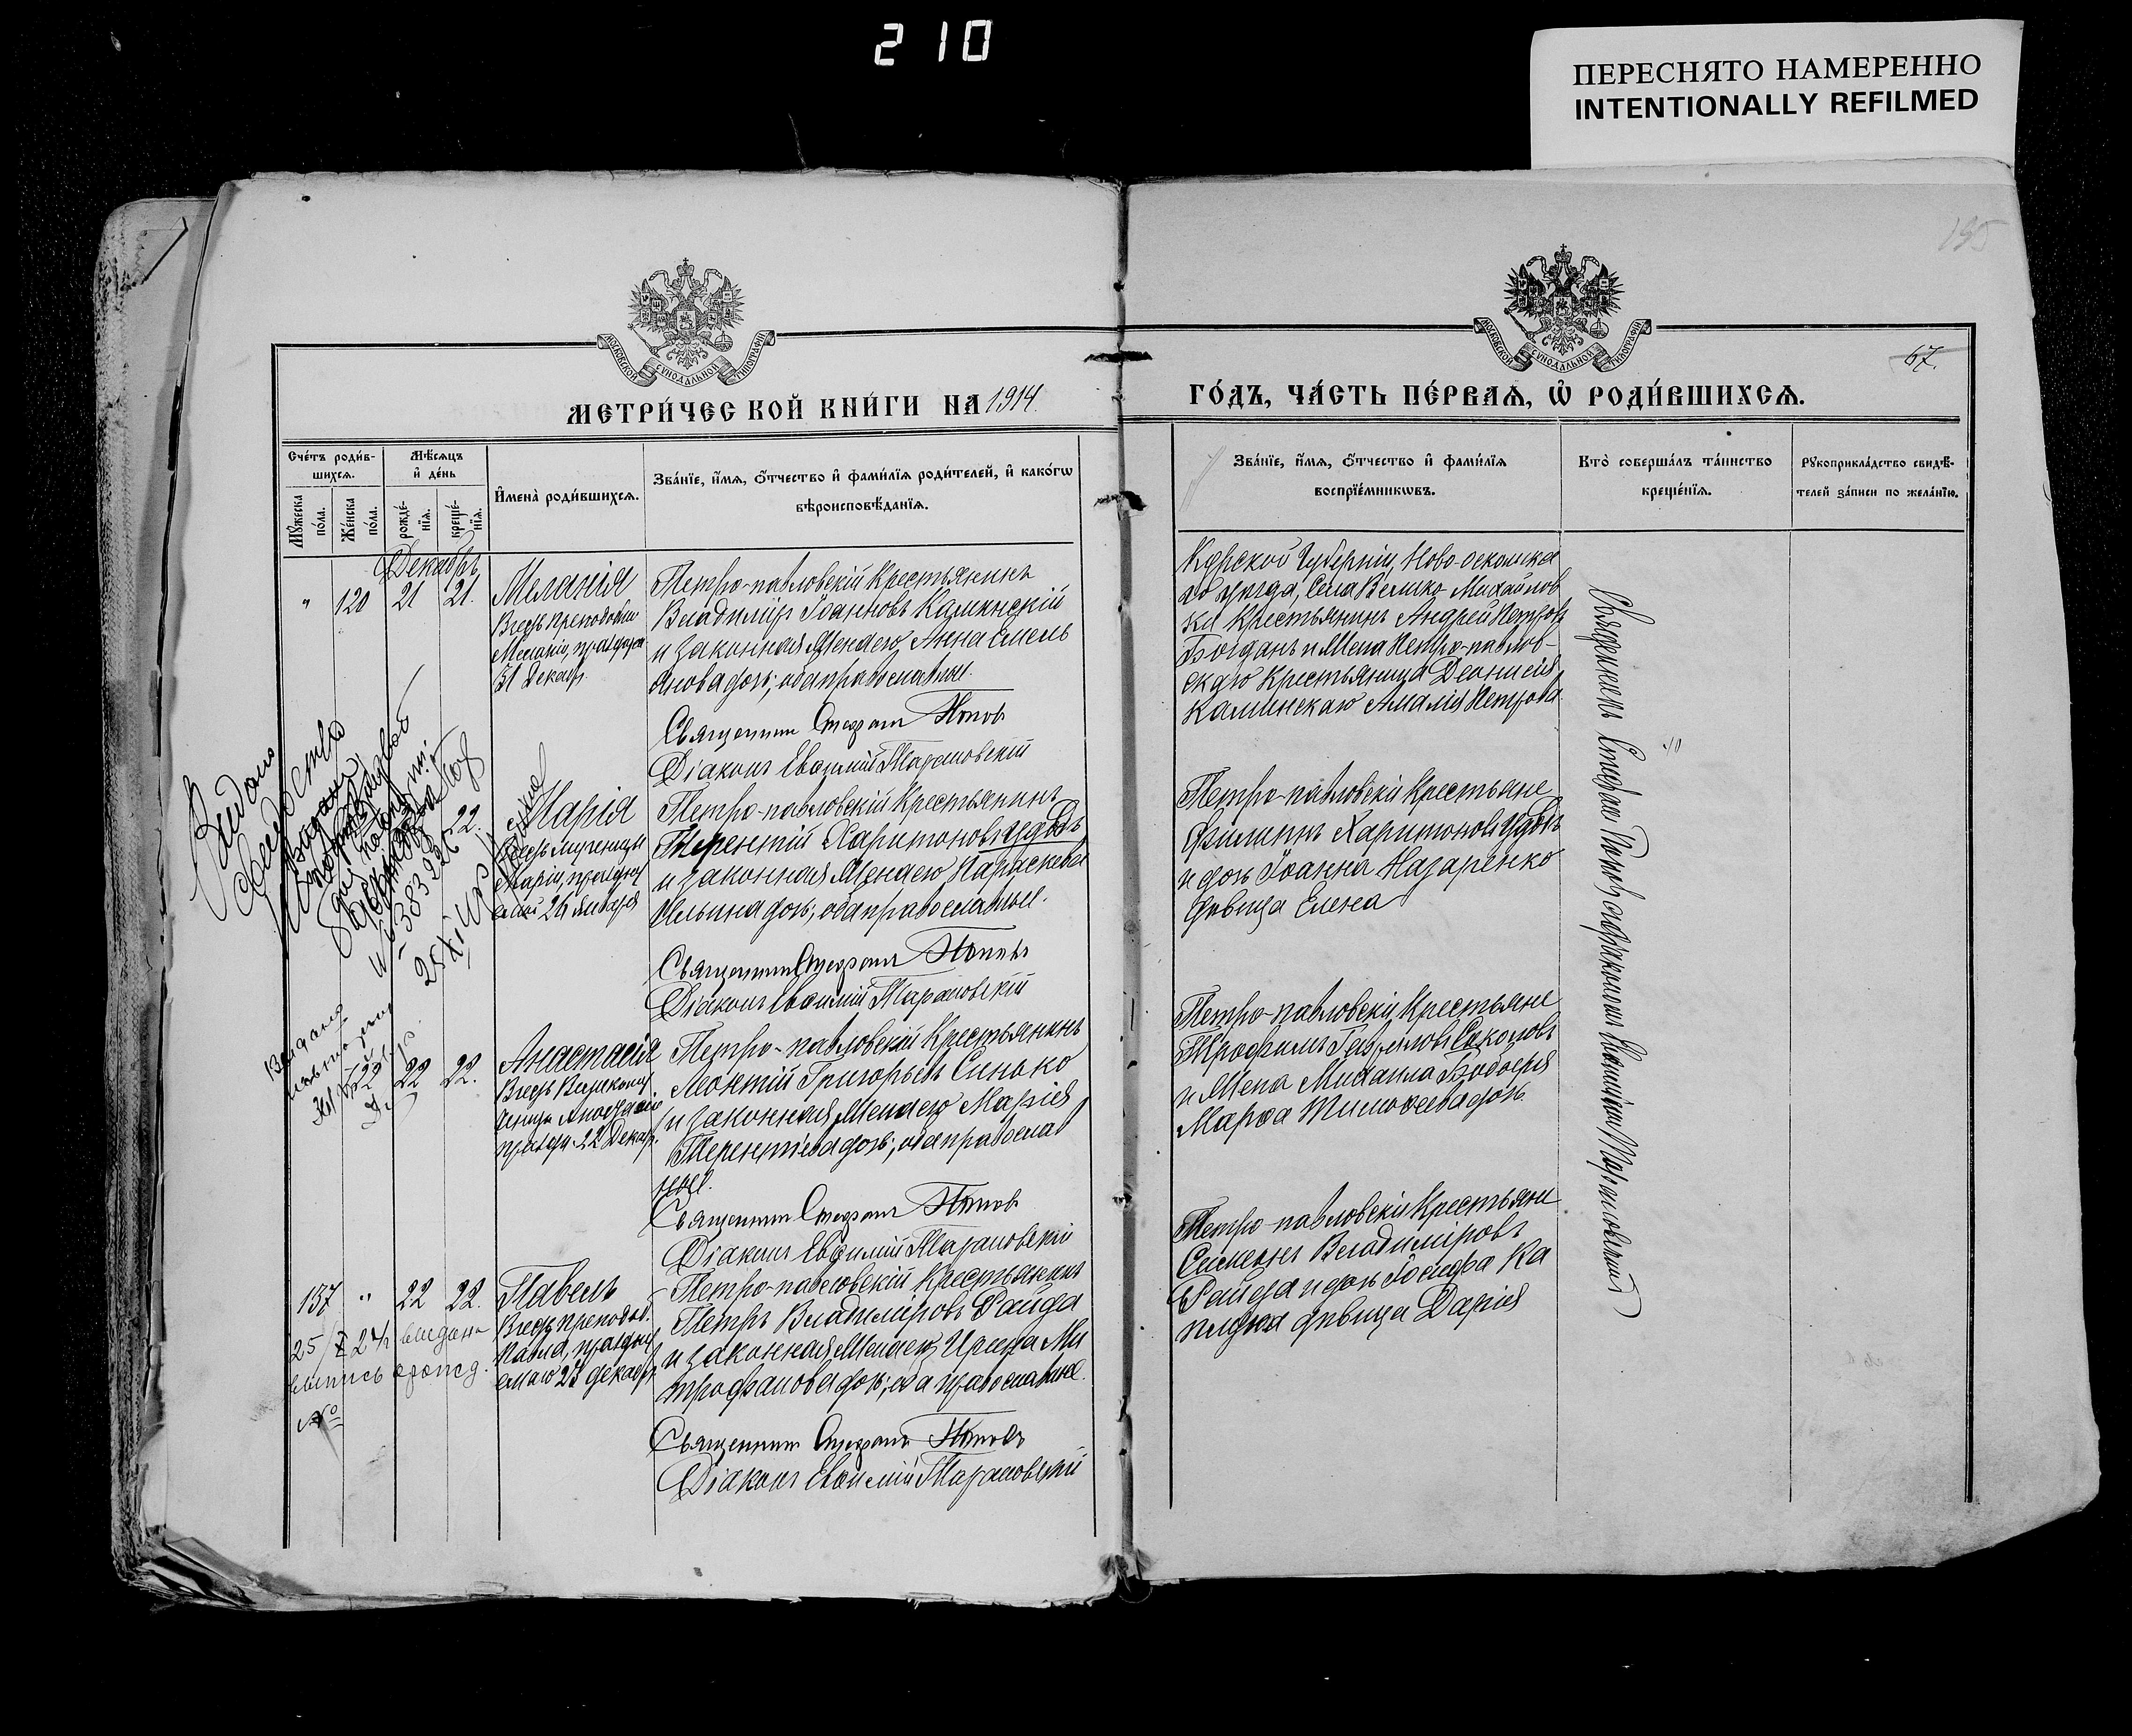 210
ПЕРЕСНЯТО НАМЕРЕННО
INTENTIONALLY REFILMED
195
67.
МОСКОВСКОЙ СѴНОДАЛЬНОЙ ТИПОГРАФІИ
МОСКОВСКОЙ СѴНОДАЛЬНОЙ ТИПОГРАФІИ
МЕТРИ́ЧЕСКОЙ КНИ́ГИ НА 1914.
ГО́ДЪ, ЧА́СТЬ ПЕ́РВАѦ, Ѡ҆ РОДИ́ВШИХСѦ.
Сче́тъ роди́в-
шихсѧ.
Мꙋ́жеска по́ла.
Же́нска по́ла.
Мѣ́сѧцъ
и҆ де́нь
рожде́-
нїѧ.
креще́-
нїѧ.
И҆мена̀ роди́вшихсѧ.
Зва́нїе, и҆́мѧ, ѻ҆́тчество и҆ фами́лїѧ роди́телей, и҆ како́гѡ
вѣроисповѣ́данїѧ.
Зва́нїе, и҆́мѧ, ѻ҆́тчество и҆ фами́лїѧ
воспрїе́мникѡвъ.
Кто̀ соверша́лъ та́инство
креще́нїѧ.
Рꙋкоприкла́дство свидѣ́-
телей за́писи по жела́нїю.
Декабрь
" 120 21 21.
Меланія
Въ честь преподобн.
Меланіи, празднуем.
31 Декабр.
Петро-павловскій Крестьянинъ
Владиміръ Іоанновъ Калинскій
и законная жена его Анна Емель
янова дочь; оба православные.
Священникъ Стефанъ Поповъ
Діаконъ Евѳимій Тарановскій
Курской Губерніи, Ново-оскольска
го уѣзда, Села Велико Михайлов
ки Крестьянинъ Андрей Петровъ
Богданъ и жена Петро-павлов-
скаго Крестьянина Діонисія
Калинскаго Амалія Петрова
Выдано
22.
Марія
Въ честь мученицы
Маріи, празднуе
мой 26 Января
Петро-павловскій Крестьянинъ
Терентій Харитоновъ Удовъ
и законная жена его Параскева
Ильина дочь; оба православные.
Священникъ Стефанъ Поповъ
Діаконъ Евѳимій Тарановскій
Петро-павловскіе Крестьяне
Филиппъ Харитоновъ Удовъ
и дочь Іоанна Назаренко
дѣвица Елена
Выдана
22 22.
Анастасія
Въ честь Великому
ченицы Анастасіи
праздн. 22 Декабр.
Петро-павловскій Крестьянинъ
Леонтій Григорьевъ Синько
и законная жена его Марія
Терентіева дочь; оба православ
ные.
Священникъ Стефанъ Поповъ
Діаконъ Евѳимій Тарановскій
Петро-павловскіе Крестьяне
Трофимъ Гавриловъ Соколовъ
и жена Михаила
Марѳа Тимоѳеева дочь.
137 " 22 22.
Павелъ
Въ честь преподоб.
Павла, праздну
емаго декабр.
Петро-павловскій Крестьянинъ
Петръ Владиміровъ Райда
и законная жена его Ирина Ми
трофанова дочь; оба православные.
Священникъ Стефанъ Поповъ
Діаконъ Евѳимій Тарановскій
Петро-павловскіе Крестьяне
Симеонъ Владиміровъ
Райда и дочь Іосифа Ка
дѣвица Дарія
25/X 24 выдана
выпись о рожд.
№
Священникъ Стефанъ Поповъ съ діакономъ Евѳиміемъ Тарановскимъ